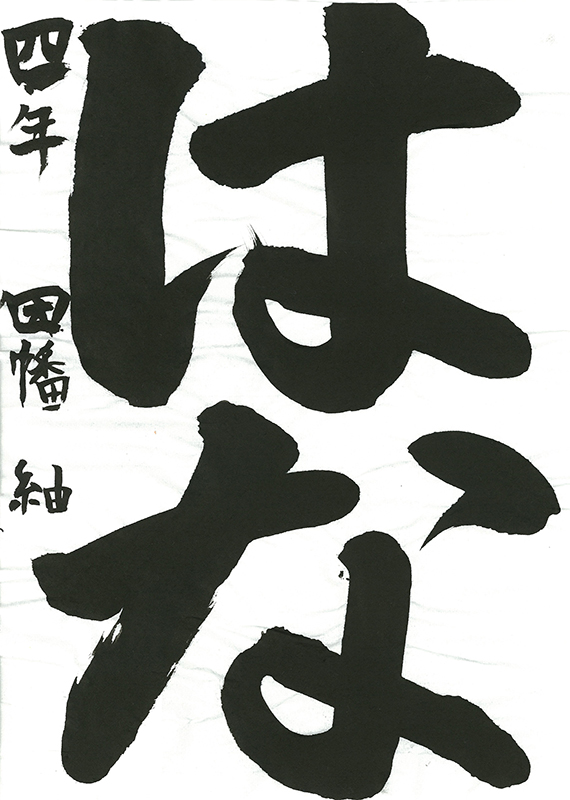 はな
四年 因幡 紬